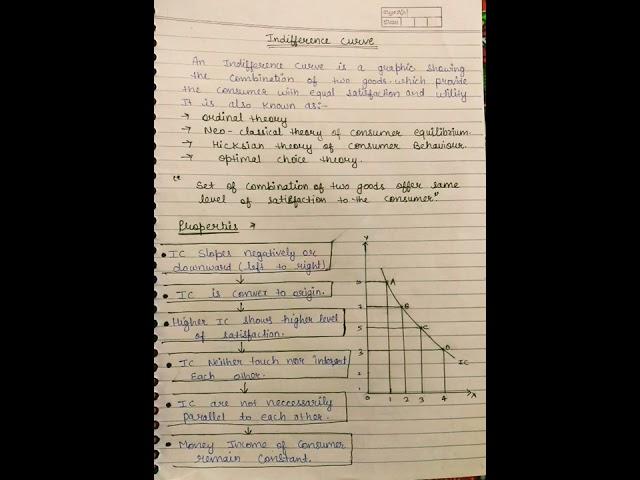 Indifference Curve
An Indifference Curve is a graphic showing
the combination of two goods which provide
the consumer with equal satisfaction and utility
It is also known as:-
→ ordinal theory
→ Neo-classical theory of consumer equilibrium.
→ Hicksian theory of consumer Behaviour.
→ optimal choice theory.
"Set of combination of two goods offer same
level of satisfaction to the consumer."
Properties →
• IC Slopes negatively or
downward (left to right)
• IC is convex to origin.
• Higher IC shows higher level
of satisfaction.
• IC Neither touch nor intersect
Each other.
• IC are not neccessarily
parallel to each other.
• Money Income of Consumer
remain Constant.
Y
10
A
7
B
5
C
3
D
IC
0 1 2 3 4 X